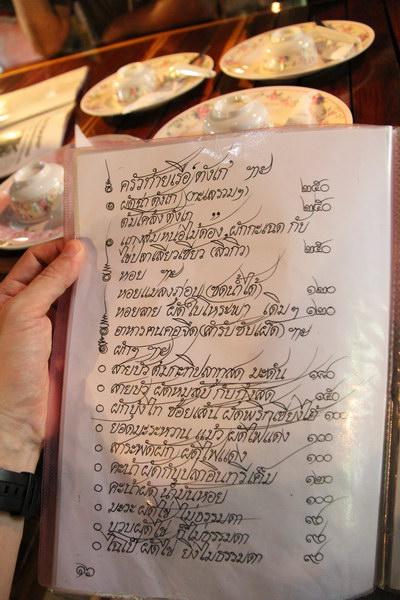 ครัวท้ายเรือ ตังเก ๆลๆ
ผัดฉ่า ตังเก (ทะเลรวมๆ) ๒๕๐
ต้มโคล้ง ตังเก " ๒๕๐
แกงส้มหน่อไม้ดอง ผักกะเฉด กับ
ไข่ปลาเรียวเซียว (สิ่วกิ่ว) ๒๕๐
หอย ๆลๆ
หอยแมลงภู่อบ (ซดน้ำได้) ๑๒๐
หอยลาย ผัดใบโหระพา เดิมๆ ๑๒๐
อาหารคนคอจืด (สำรับซับเผ็ด) ๆลๆ
ผักๆ ๆลๆ
สายบัว ต้มกะทิปลาทูสด มะดัน ๑๘๐
สายบัว ผัดหมูสับ กับกุ้งสด ๑๕๐
ผักบุ้งไทย ซอยเส้น ผัดพริกเซี่ยงไฮ้ ๑๐๐
ยอดมะระหวาน แม้ว ผัดไฟแดง ๑๐๐
สาระพัดผัก ผัดไฟแดง ๑๐๐
คะน้า ผัดกับปลาอินทรีเค็ม ๑๒๐
คะน้าผัด น้ำมันหอย ๑๐๐
มะระ ผัดไข่ ไม่ธรรมดา ๙๐
บวบผัดไข่ ก็ไม่ธรรมดา ๙๐
ไชโป๊ ผัดไข่ ยิ่งไม่ธรรมดา ๙๐
๑๖